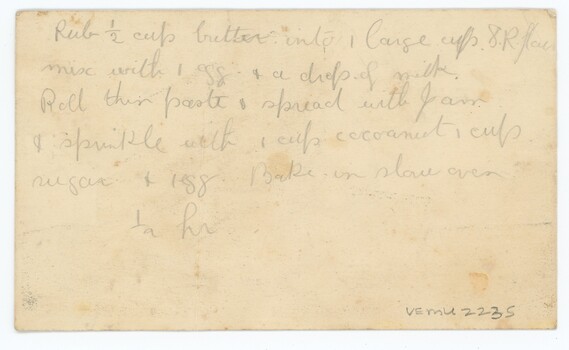 Rub ½ cup butter into 1 large cup S.R flour
mix with 1 egg & a drop of milk.
Roll thin paste & spread with Jam
& sprinkle with 1 cup cocoanut 1 cup
sugar & 1 egg. Bake in slow oven
½ hr
2235